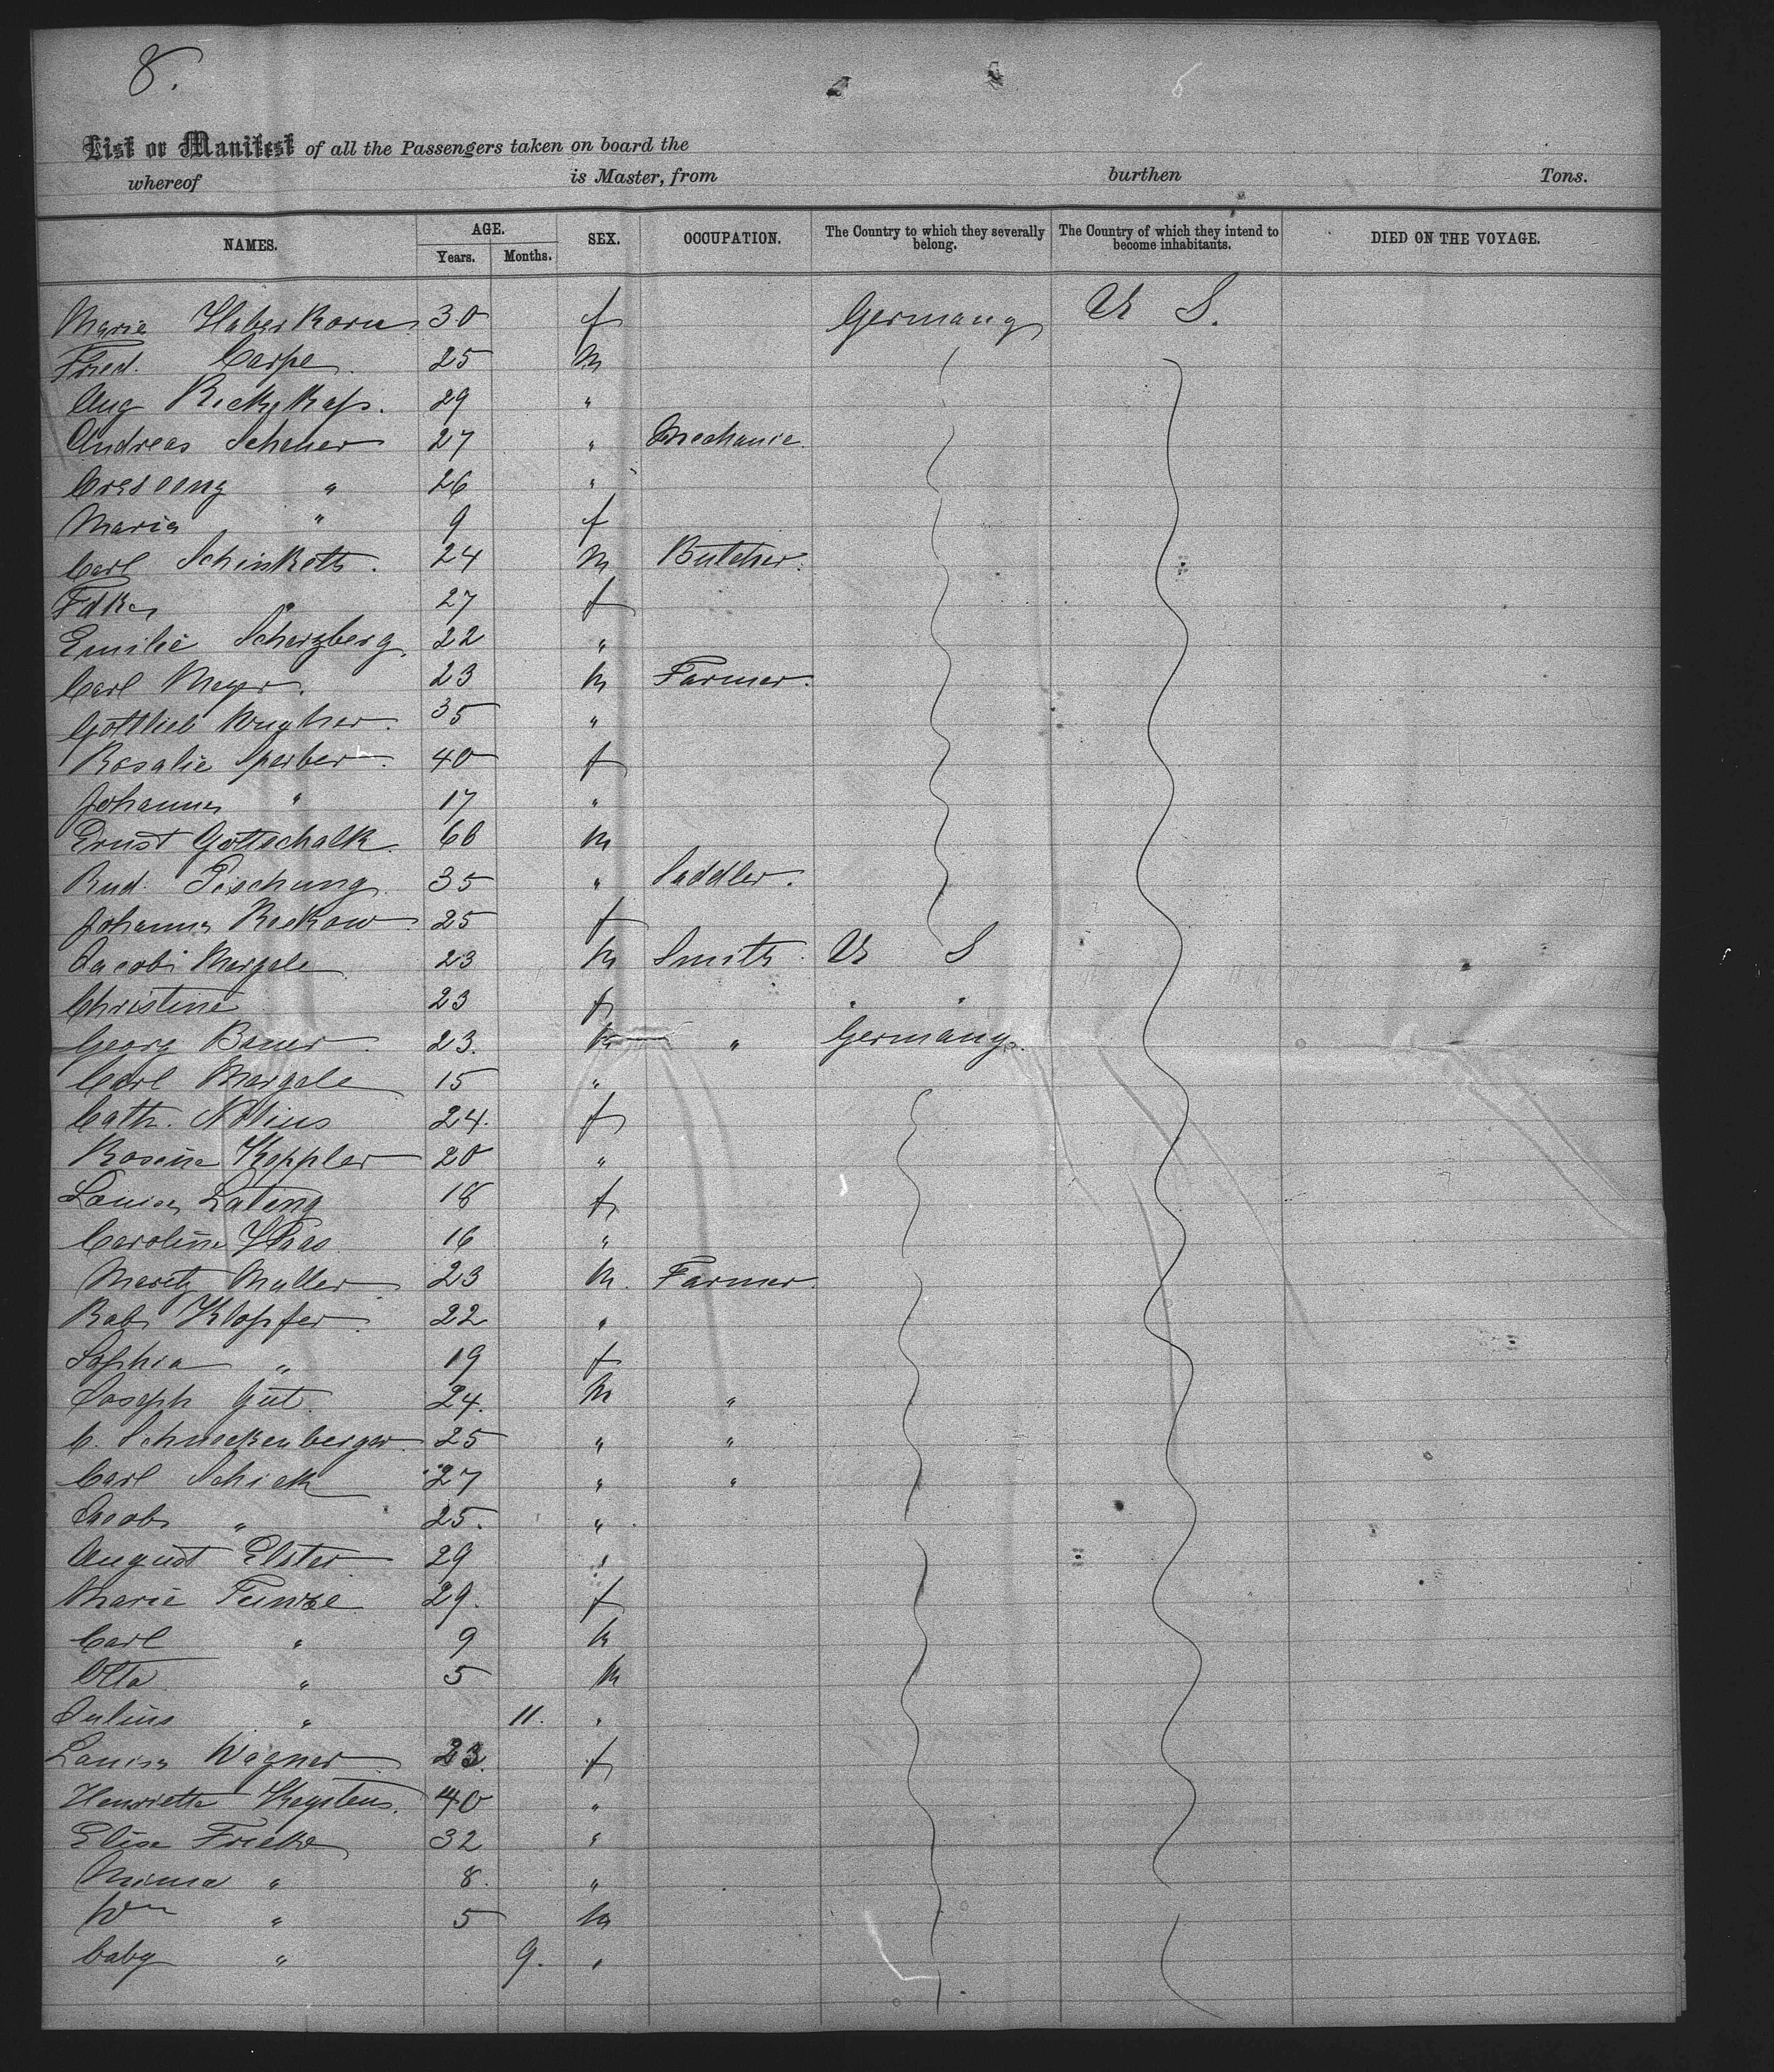 8.
List or Manifest of all the Passengers taken on board the
whereof is Master, from burthen Tons.
NAMES. AGE. Years. Months. SEX. OCCUPATION. The Country to which they severally belong. The Country of which they intend to become inhabitants. DIED ON THE VOYAGE.
Maria Haberkorn 30 f Germany U S.
Fried. Carpe. 25 m
Aug 29 "
Andreas Scheuer 27 " Mechanic.
" 26 "
Maria " 9 f
Carl 24 m Butcher.
" 27 f
Emilie Scherzberg. 22 "
Carl Meyer. 23 m Farmer.
Gottlieb 35 "
Rosalie Sperber 40 f
Johanna " 17 "
Ernst Gottschalk. 66 m
Rud. Pischung. 35 " Saddler.
Johanna Rockow 25 f
Jacob Mergele 23 m Smith. U S
Christine 23 f " "
Georg Bauer 23. m " Germany.
Carl Mergele 15 "
Cath. 24. f
Rosina Keppler 20 "
Louisa Lating 18 f
Caroline Haas 16 "
Moritz Muller. 23 m. Farmer.
Bab. Klopfer. 22 "
Sophia " 19 f
Joseph Gut. 24. m "
C. Schneckenberger. 25 " "
Carl Schick 27 " "
Jacob " 25. "
August Elster 29 "
Marie 29. f
Carl " 9 m
Otto " 5 m
Julius " 11. "
Louisa Wagner. 23. f
Henriette 40 "
Elise Fricke 32 "
Minna " 8. "
Wm " 5 m
baby " 9. "